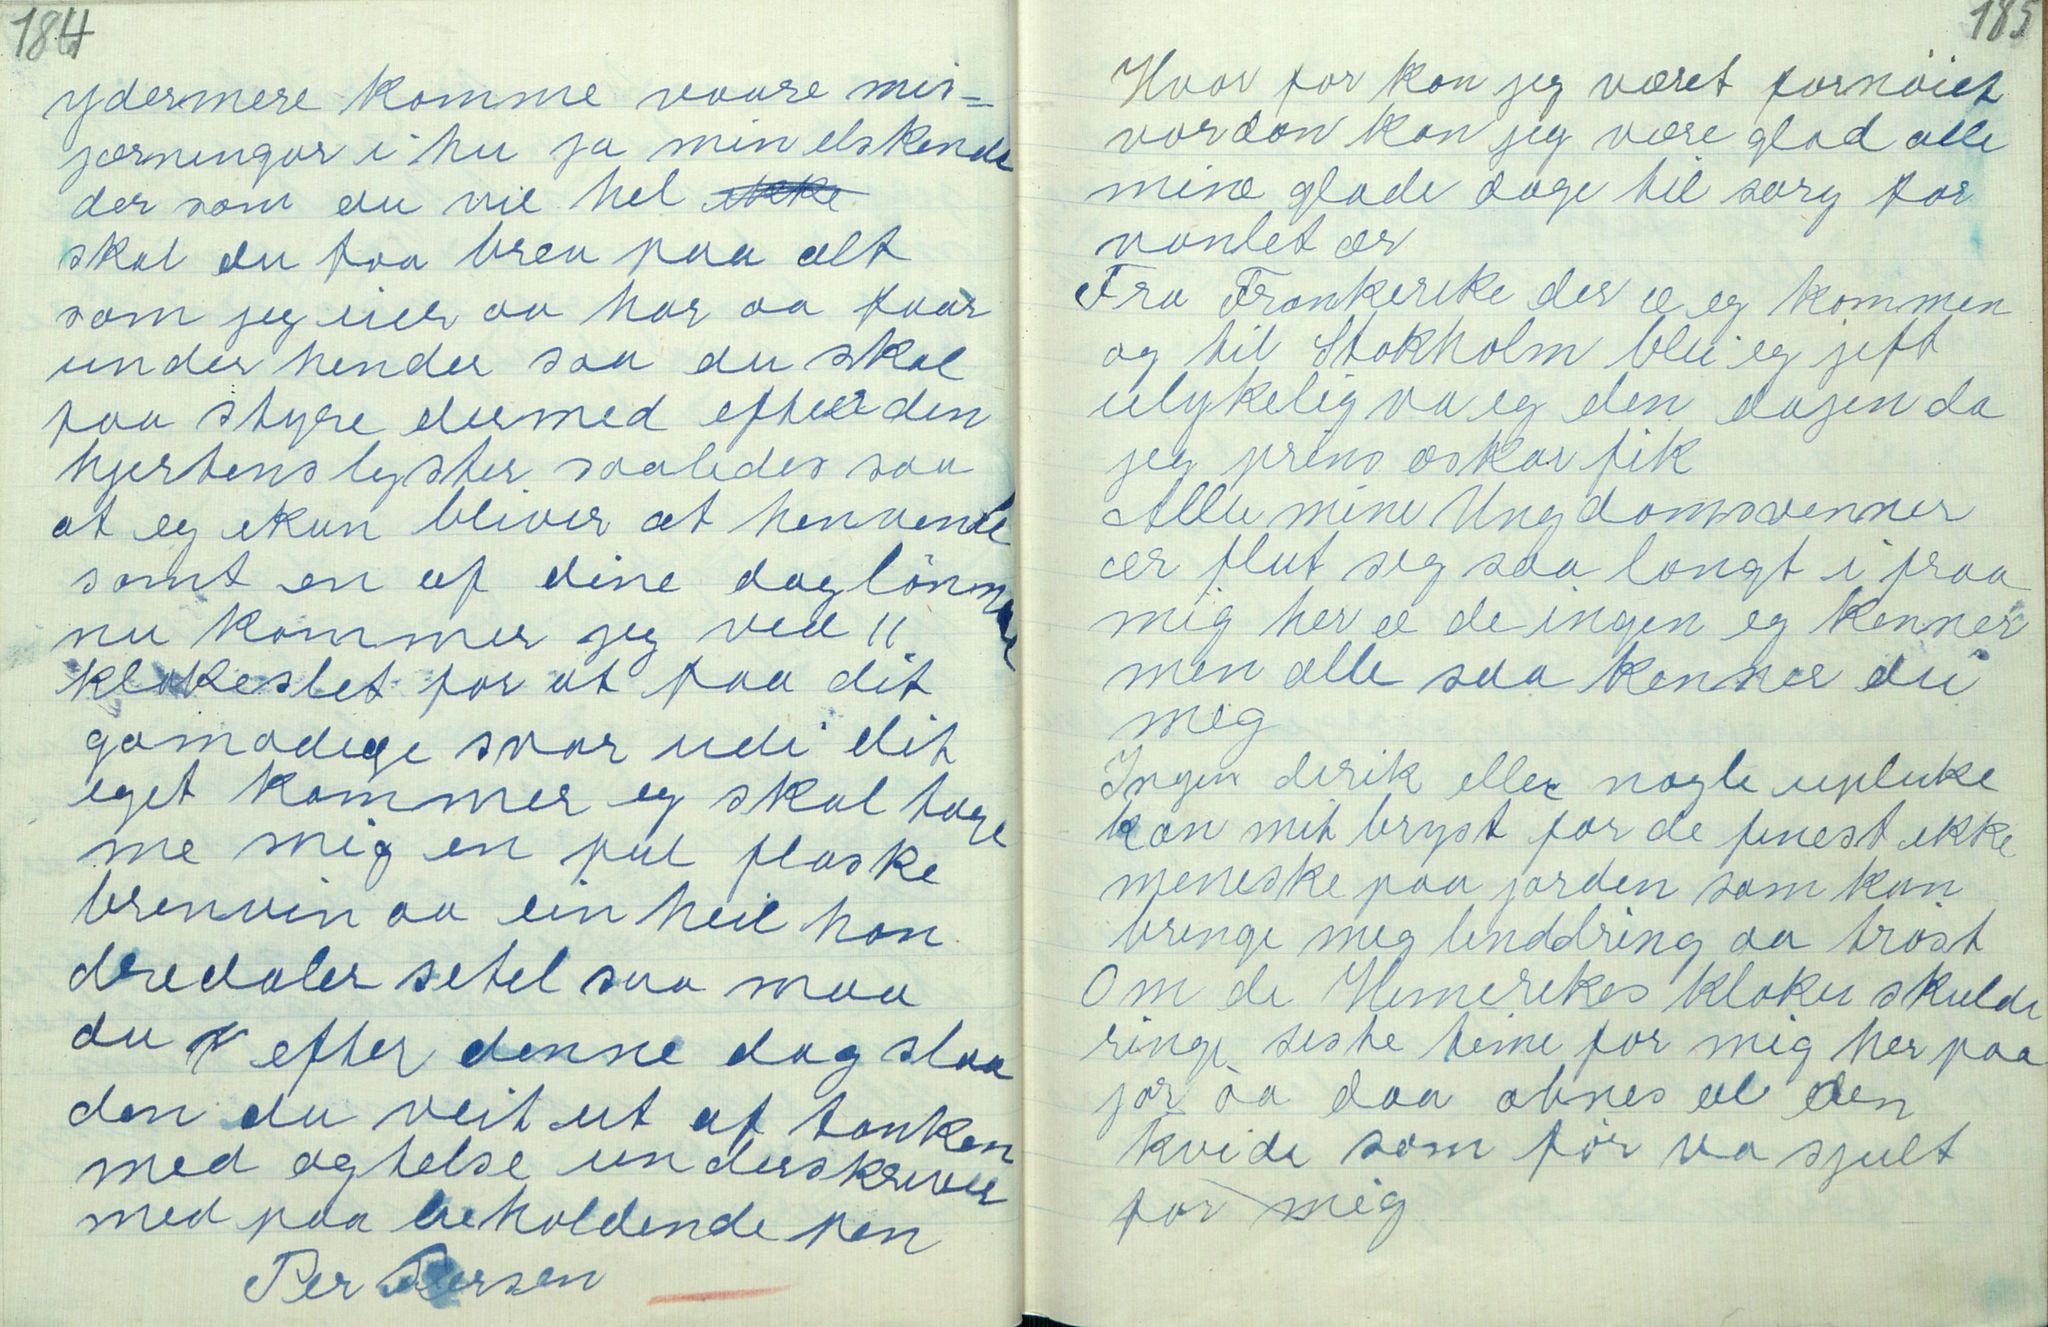 184
ydermere komme vaare mis=
jærninger i hu ja min elskende
der som du vil hel ikke
skal du faa brev paa alt
som jeg eier aa har aa faar
under hender saa du skal
faa styre dermed efter den
hjertens lyster saaledes saa
at eg ekun bliver at henvende
somt en af dine daglönnar
nu kommer jeg ved 11
klokeslet for at faa dit
gomodige svar udi dit
eget kammer eg skal tage
me mig en pul flaske
brenvin aa ein heil hon
dredaler setel saa maa
du efter denne dag slaa
den du veit ut af tanken
med agtelse underskriver
med paa beholdende pen
Per Persen
185
Hvor for kan jeg været fornöiet
vordan kan jeg være glad alle
mine glade dage til sorg for
vanlet er
Fra Frankerike der æ eg kommen
og til Stokholm blei eg jift
ulykelig va eg den dagen da
jeg prins oskar fik
Alle mine Ungdomsvenner
ær flut seg saa langt i fraa
mig her æ de ingen eg kenner
men alle saa kenner dei
meg
Ingen dirik eller nogle upluke
kan mit bryst for de finest ikke
meneske paa jorden som kan
bringe meg linddring aa tröst
Om de Himerikes kloker skulde
ringe siste time for mig her paa
jor aa daa abnes al den
kvide som för va sjult
for mig